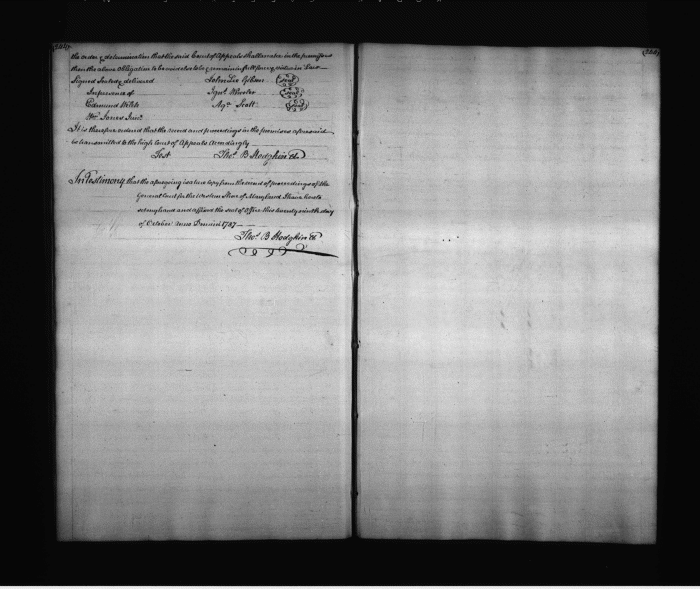 the order & determination that the said Court of Appeals shall make in the premises
then the above obligation to be void else to be & remain in full force & virtue in Law
Signed Sealed & delivered John Lee Gibson (Seal)
In presence of Ignt. Wheeler (Seal)
Edmund Aqa. Scott (Seal)
Wm. Jones Junr.
It is therefore ordered that the record and proceedings in the premises aforesaid
be transmitted to the high Court of Appeals Accordingly
Test Thos. B Hodgkin Cl.
In Testimony that the aforegoing is a true Copy from the record of proceedings of the
General Court for the Western Shore of Maryland I have hereto
set my hand and affixed the seal of Office this twenty ninth day
of October Anno Domini 1787
Thos. B Hodgkin Cl.